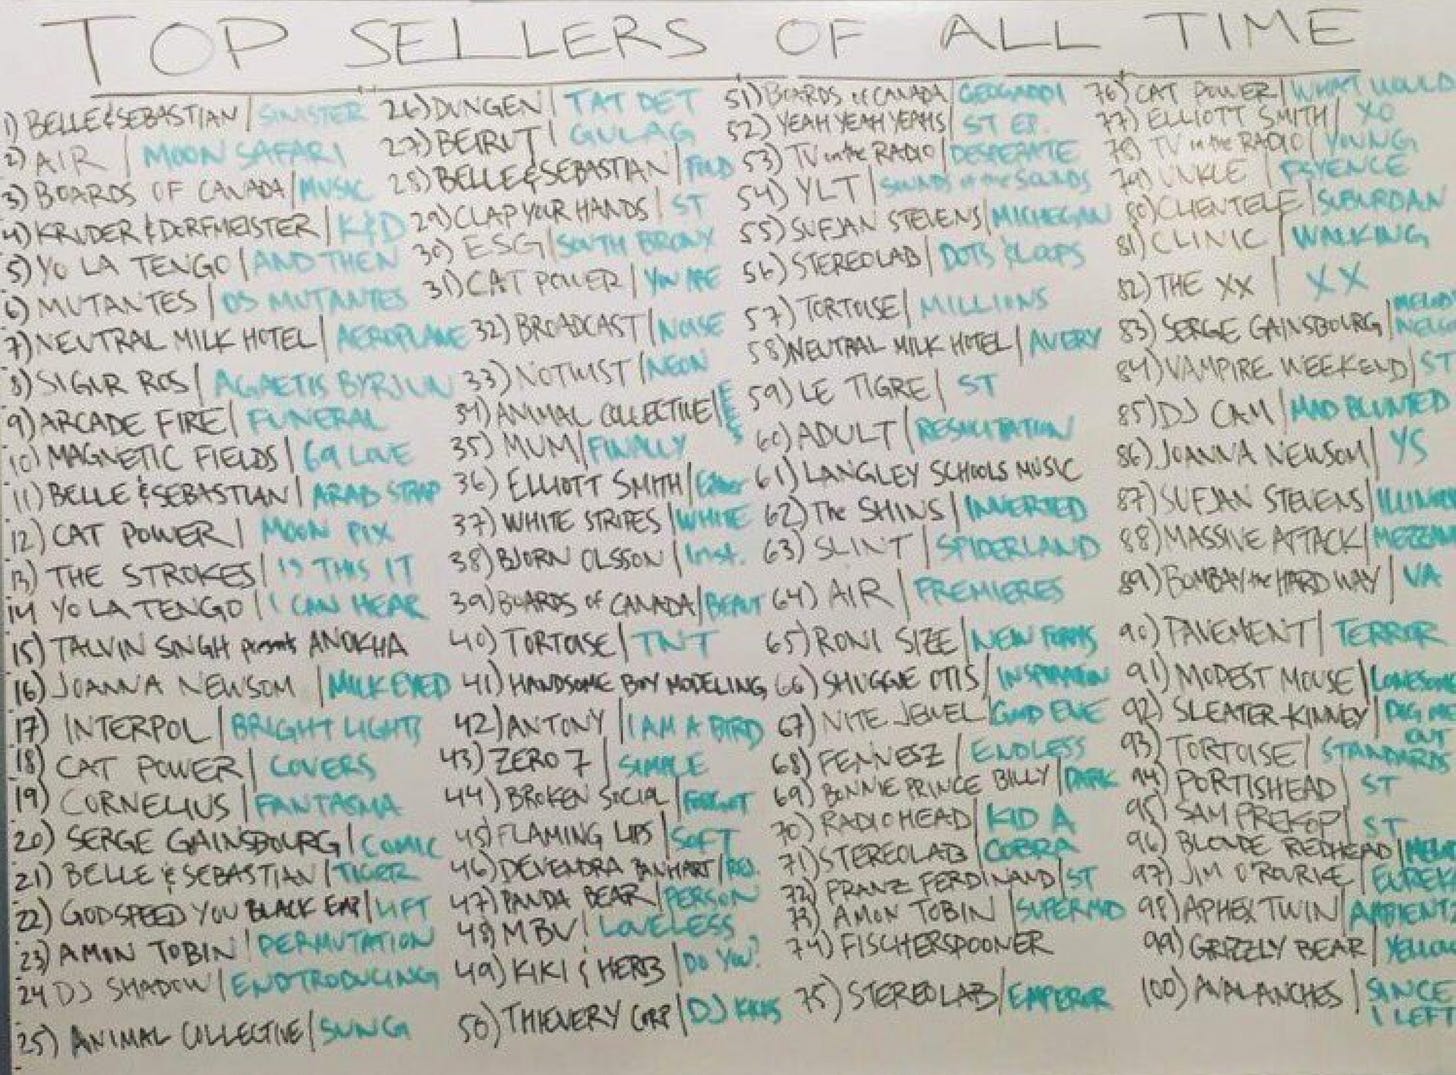 TOP SELLERS OF ALL TIME
1) BELLE & SEBASTIAN | SINISTER
2) AIR | MOON SAFARI
3) BOARDS OF CANADA | MUSIC
4) KRUDER & DORFMEISTER | K&D
5) YO LA TENGO | AND THEN
6) MUTANTES | OS MUTANTES
7) NEUTRAL MILK HOTEL | AEROPLANE
8) SIGUR ROS | AGAETIS BYRJUN
9) ARCADE FIRE | FUNERAL
10) MAGNETIC FIELDS | 69 LOVE
11) BELLE & SEBASTIAN | ARAB STRAP
12) CAT POWER | MOON PIX
13) THE STROKES | IS THIS IT
14 YO LA TENGO | I CAN HEAR
15) TALVIN SINGH presents ANOKHA
16) JOANNA NEWSOM | MILK EYED
17) INTERPOL | BRIGHT LIGHTS
18) CAT POWER | COVERS
19) CORNELIUS | FANTASMA
20) SERGE GAINSBOURG | COMIC
21) BELLE & SEBASTIAN | TIGER
22) GODSPEED YOU BLACK EMP | LIFT
23) AMON TOBIN | PERMUTATION
24 DJ SHADOW | ENDTRODUCING
25) ANIMAL COLLECTIVE | SUNG
26) DUNGEN | TAT DET
27) BEIRUT | GULAG
28) BELLE & SEBASTIAN | FOLD
29) CLAP YOUR HANDS | ST
30) ESG | SOUTH BRONX
31) CAT POWER | YOU ARE
32) BROADCAST | NOISE
33) NOTWIST | NEON
34) ANIMAL COLLECTIVE |
35) MUM | FINALLY
36) ELLIOTT SMITH | Either
37) WHITE STRIPES | WHITE
38) BJORN OLSSON | Inst.
39) BOARDS OF CANADA | BEAUT
40) TORTOISE | TNT
41) HANDSOME BOY MODELING
42) ANTONY | I AM A BIRD
43) ZERO 7 | SIMPLE
44) BROKEN SOCIAL | FORGOT
45) FLAMING LIPS | SOFT
46) DEVENDRA BANHART | REJ.
47) PANDA BEAR | PERSON
48) MBV | LOVELESS
49) KIKI & HERB | DO YOU?
50) THIEVERY CORP | DJ KICKS
51) BOARDS OF CANADA | GEOGADDI
52) YEAH YEAH YEAHS | ST EP.
53) TV on the RADIO | DESPERATE
54) YLT | SOUNDS of the SOUNDS
55) SUFJAN STEVENS | MICHEGAN
56) STEREOLAB | DOTS & LOOPS
57) TORTOISE | MILLIONS
58) NEUTRAL MILK HOTEL | AVERY
59) LE TIGRE | ST
60) ADULT | RESUCITATION
61) LANGLEY SCHOOLS MUSIC
62) The SHINS | INVERTED
63) SLINT | SPIDERLAND
64) AIR | PREMIERES
65) RONI SIZE | NEW FORMS
66) SHUGGIE OTIS | INSPIRATION
67) NITE JEWEL | GOOD EVE
68) FENNESZ | ENDLESS
69) BONNIE PRINCE BILLY | DARK
70) RADIOHEAD | KID A
71) STEREOLAB | COBRA
72) FRANZ FERDINAND | ST
73) AMON TOBIN | SUPERMOD
74) FISCHERSPOONER
75) STEREOLAB | EMPEROR
76) CAT POWER | WHAT WOULD
77) ELLIOTT SMITH | XO
78) TV in the RADIO | YOUNG
79) UNKLE | PSYENCE
80) CLIENTELE | SUBURBAN
81) CLINIC | WALKING
82) THE XX | XX
83) SERGE GAINSBOURG | MELODY NELSO
84) VAMPIRE WEEKEND | ST
85) DJ CAM | MAD BLUNTED
86) JOANNA NEWSOM | YS
87) SUFJAN STEVENS | ILLINO
88) MASSIVE ATTACK | MEZZAN
89) BOMBAY the HARD WAY | VA
90) PAVEMENT | TERROR
91) MODEST MOUSE | LONESOME
92) SLEATER-KINNEY | DIG ME OUT
93) TORTOISE | STANDARDS
94) PORTISHEAD | ST
95) SAM PREKOP | ST
96) BLONDE REDHEAD | MELO
97) JIM O'ROURKE | EUREK
98) APHEX TWIN | AMBIENT
99) GRIZZLY BEAR | YELLOW
100) AVALANCHES | SINCE I LEFT